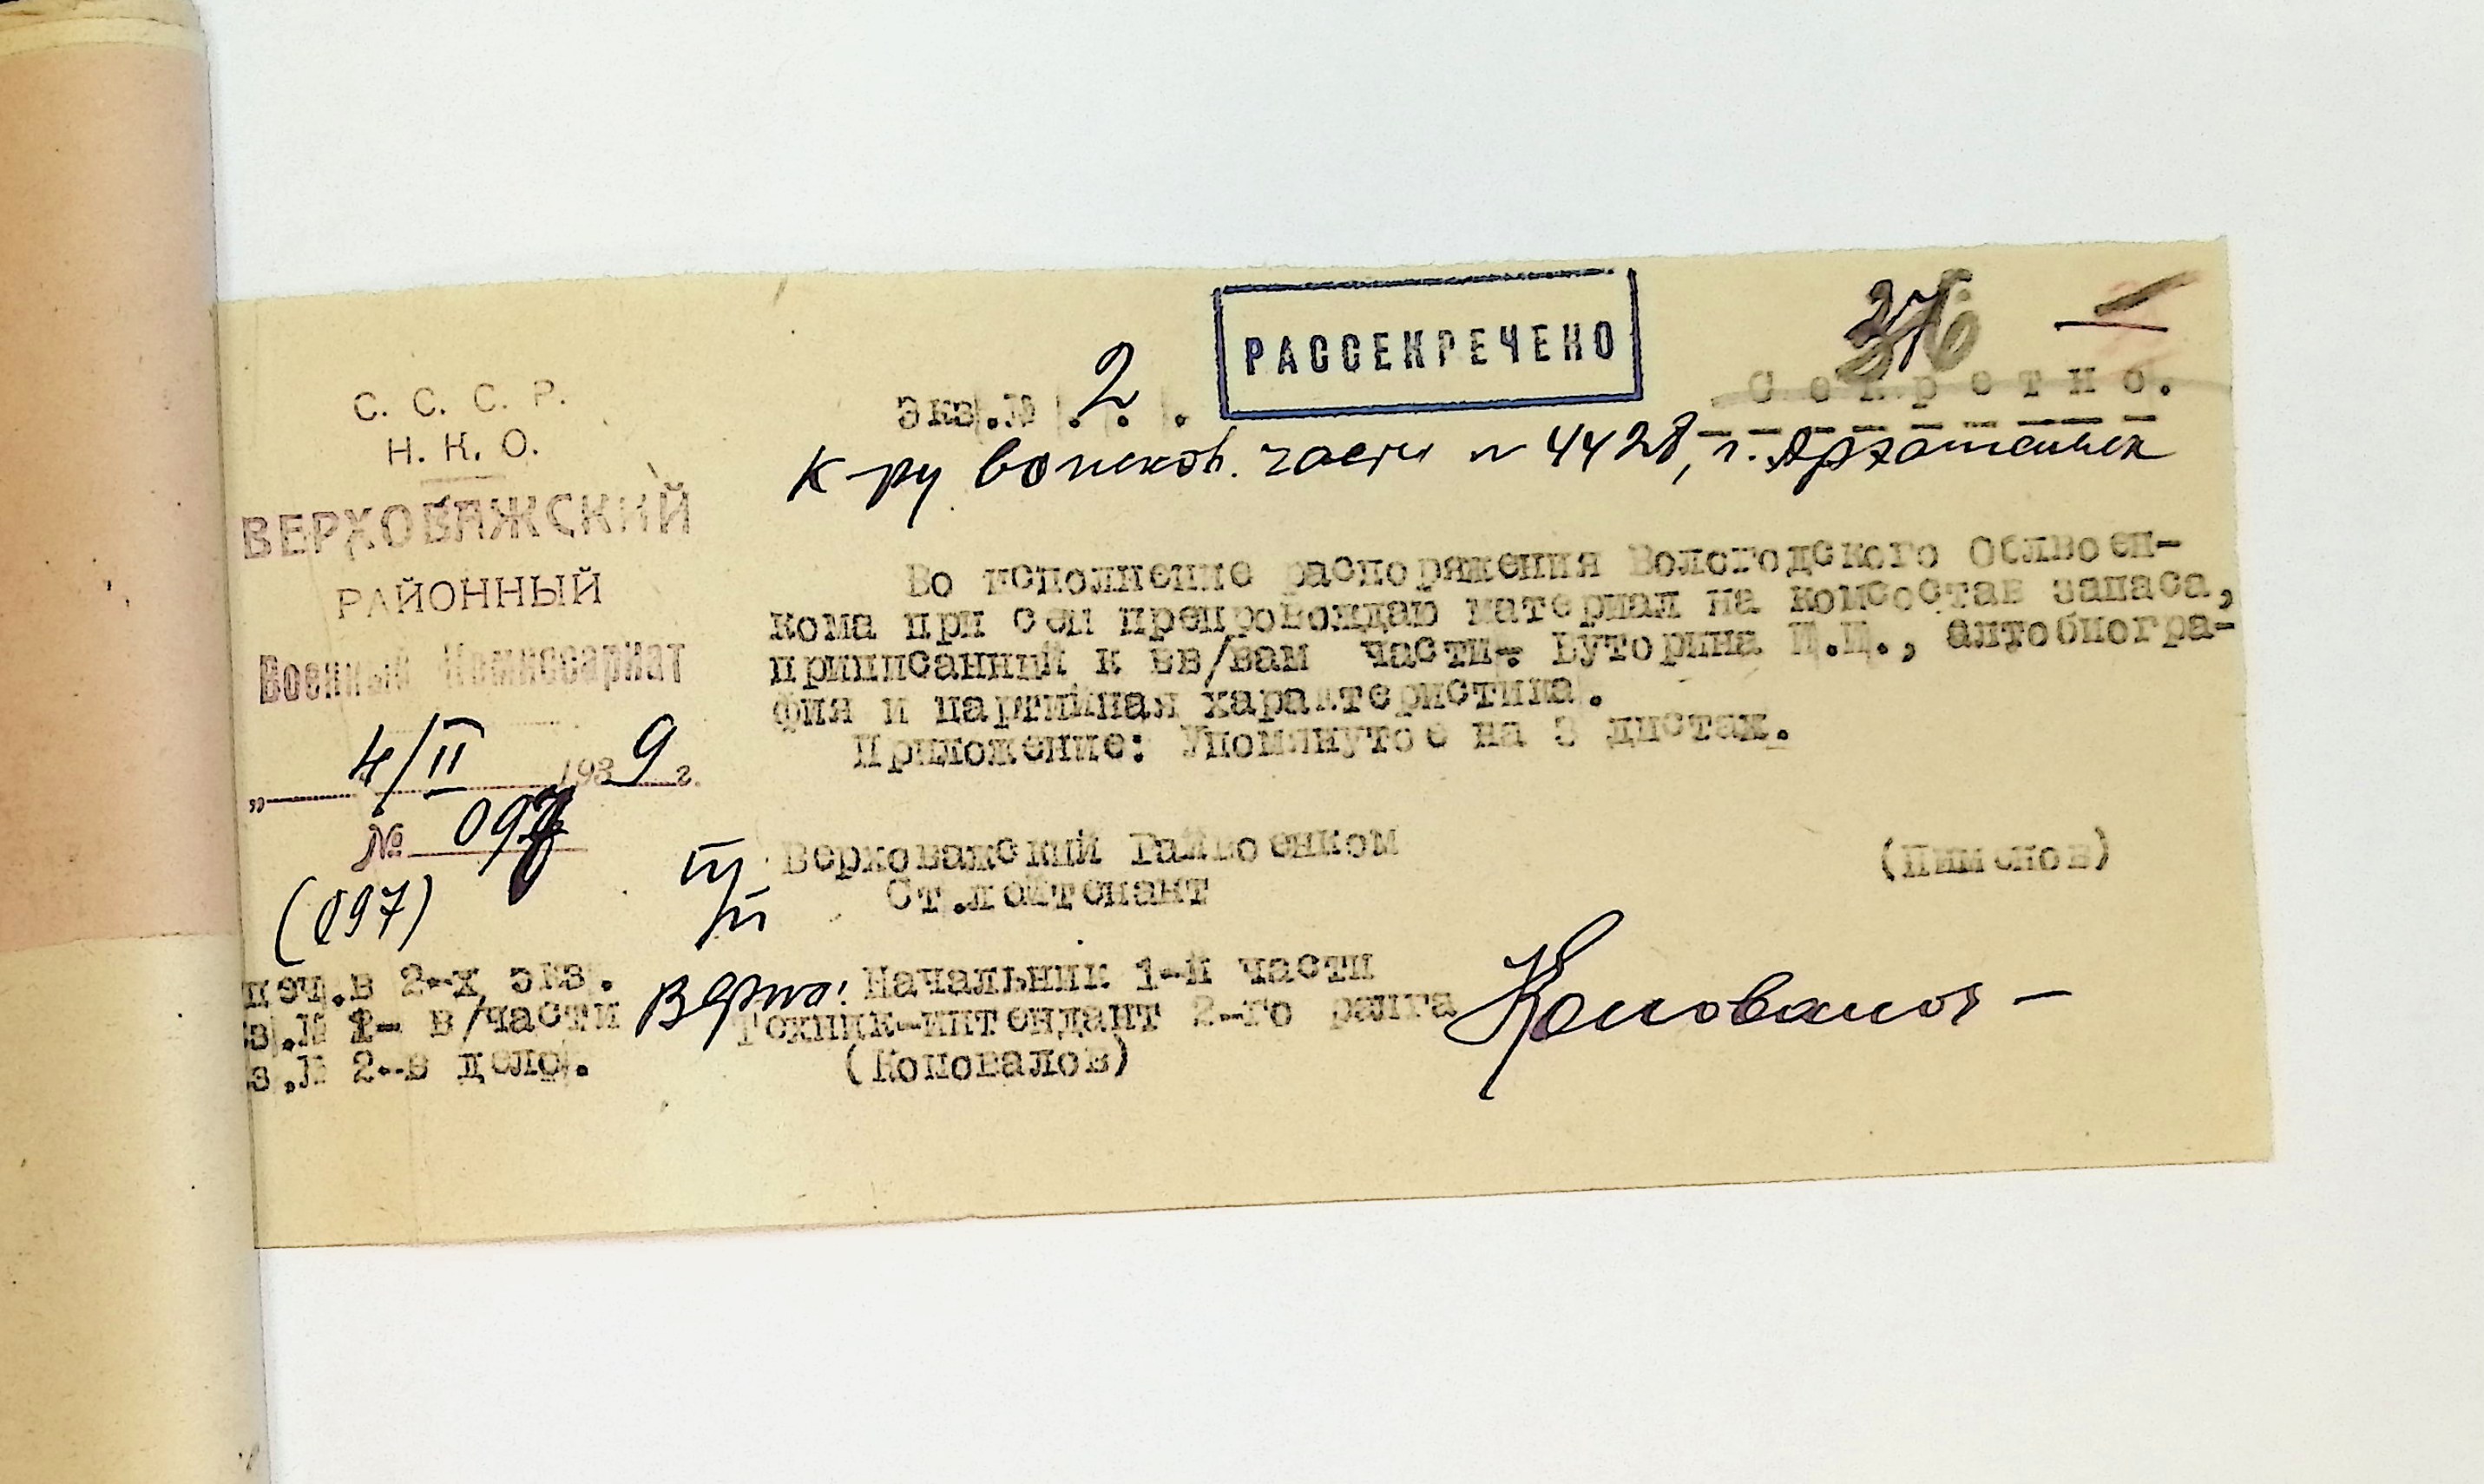 РАССЕКРЕЧЕНО
С е к р е т н о.
экз.№ 2.
К-ру войсков. части № 4428, г. Архангельск
С. С. С. Р.
Н. К. О.
ВЕРХОВАЖСКИЙ
РАЙОННЫЙ
Военный Комиссариат
4/II 1939 г.
№ 097
(097)
Во исполнение распоряжения Вологодского Облвоен-
кома при сем препровождаю материал на комсостав запаса,
приписанный к вв/вам части- Буторина И.И., автобиогра-
фия и партийная характеристика.
Приложение: Упомянутое на 3 листах.
Верховажский Райвоенком
Ст.лейтенант
(Пименов)
Верно: Начальник 1-й части
Техник-интендант 2-го ранга
(Коновалов)
Коновалов
печ.в 2-х экз.
з.№ 1- в/части
з.№ 2-в дело.